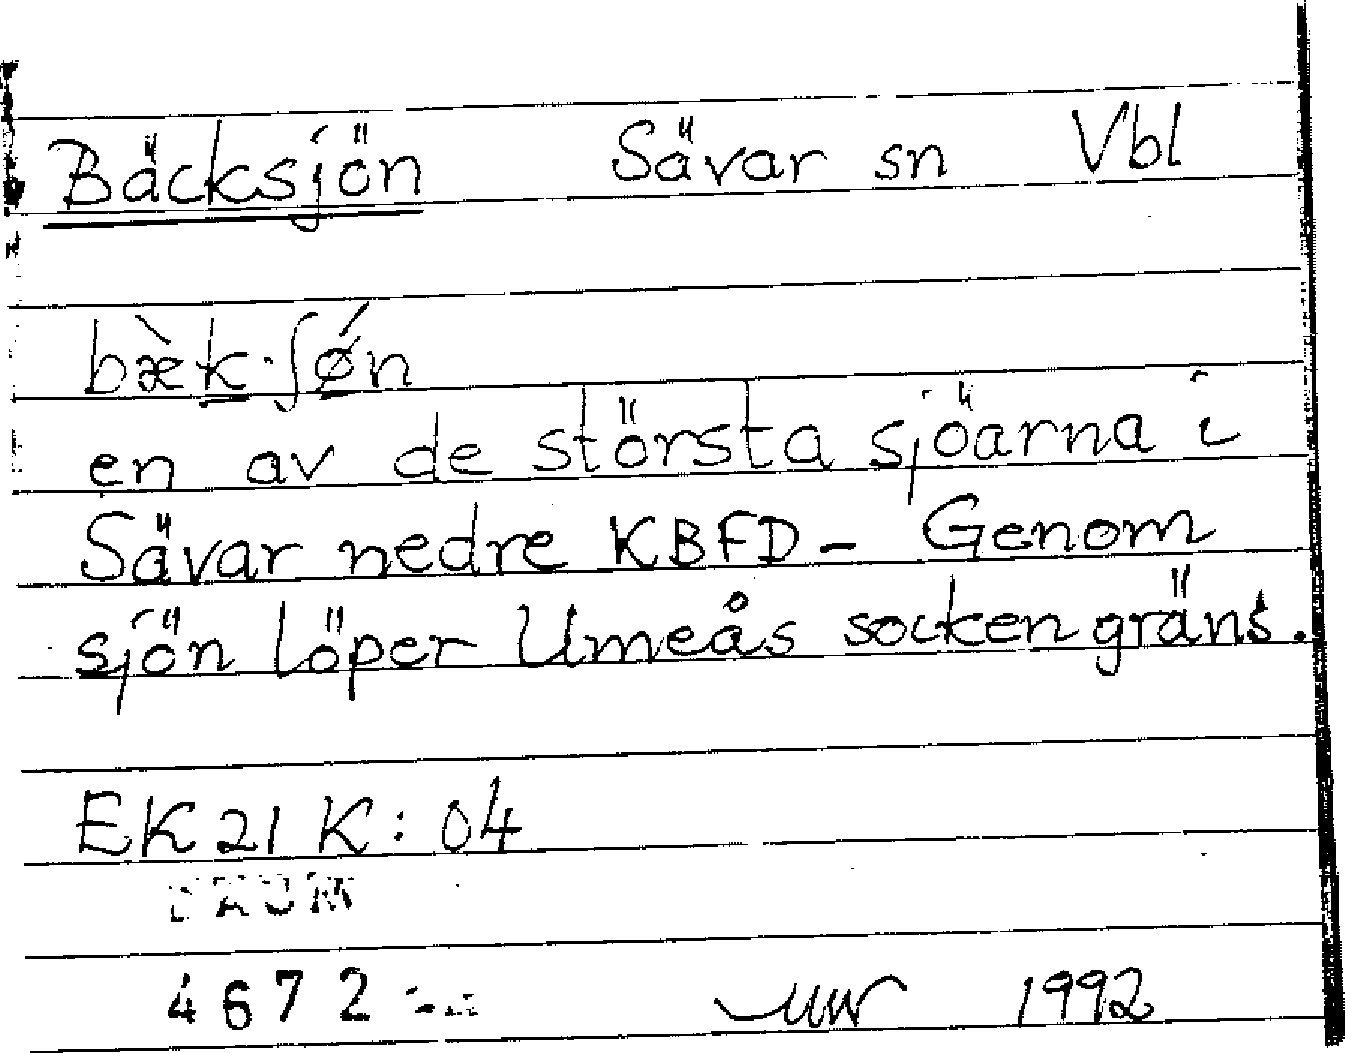 Bäcksjön Sävar sn Vbl
bæ̀k·ʃǿn
en av de största sjöarna i
Sävar nedre KBFD - Genom
sjön löper Umeås sockengräns.
EK 21 K: 04
DAUM
4672
1992